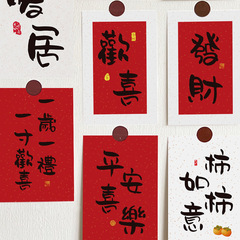 居
歡喜
發財
一歲一禮
一寸歡喜
平安
喜樂
柿柿
如意